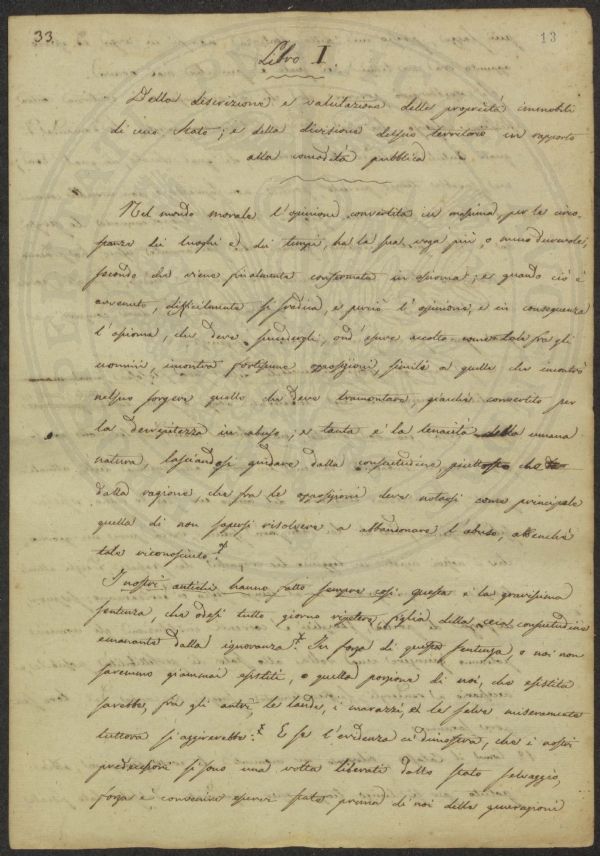 33.
13
Libro I.
Della descrizione e valutazione delle proprietà immobili
di uno Stato; e della divisione del suo territorio in rapporto
alla comodità pubblica
Nel mondo morale l'opinione convertita in massima, per le circo
stanze dei luoghi e dei tempi, ha la sua voga più, o meno durevole,
secondo che viene finalmente confermata in; e quando ciò è
avvenuto, difficilmente si, e perciò l'opinione, e in conseguenza
l', che deve, ond'essere accolta fra gli
uomini, incontra fortissime opposizioni, simili a quelle che incontrò
nel suo sorgere quello che deve tramontare, giacchè convertito per
la in abuso, e tanta è la tenacità della umana
natura, lasciandosi guidare dalla consuetudine piuttosto che
dalla ragione, che fra le opposizioni deve notarsi come principale
quella di non sapersi risolvere a abbandonare l'abuso, abbenchè
tale riconosciuto.
I nostri antichi hanno fatto sempre così questa è la gravissima
sentenza, che odesi tutto giorno ripetere, figlia della consuetudine
emanante dalla ignoranza. In forza di questa sentenza, o noi non
saremmo giammai esistiti, o quella porzione di noi, che esistita
sarebbe, fra gli antri, le lande, i marazzi, e le selve miseramente
tuttora si aggirerebbe. E se l'evidenza ci dimostra, che i nostri
predecessori si sono una volta liberati dallo stato selvaggio,
forza è convenire esservi state prima di noi delle generazioni